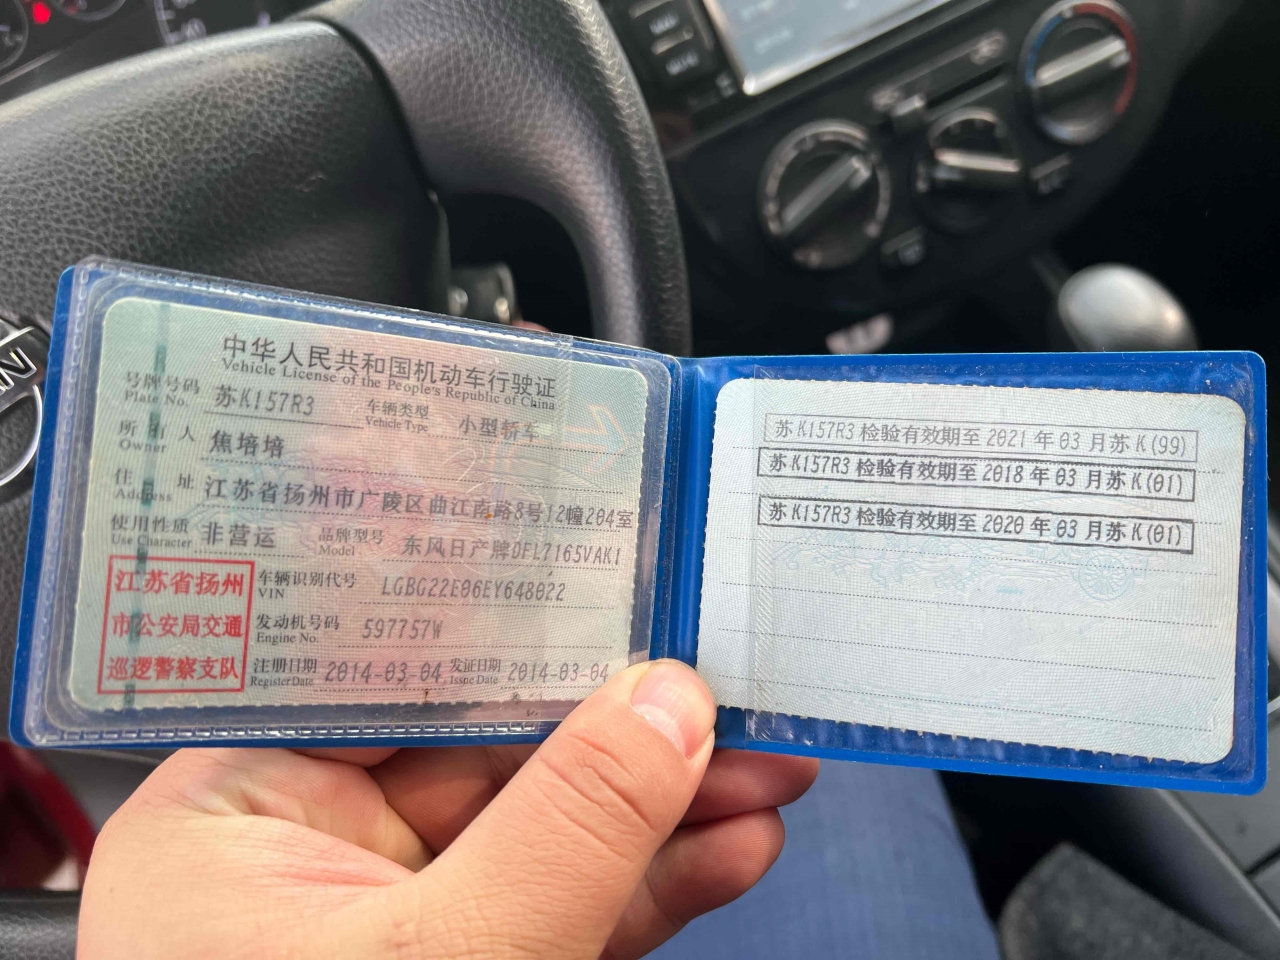 中华人民共和国机动车行驶证
Vehicle License of the People's Republic of China
号牌号码 苏K157R3 车辆类型 小型轿车
Plate No. Vehicle Type
所有人 焦培培
Owner
住址 江苏省扬州市广陵区曲江南路8号12幢204室
Address
使用性质 非营运 品牌型号 东风日产牌DFL7165VAK1
Use Character Model
江苏省扬州
市公安局交通
巡逻警察支队
车辆识别代号 LGBG22E06EY648022
VIN
发动机号码 597757W
Engine No.
注册日期 2014-03-04 发证日期 2014-03-04
Register Date Issue Date
苏K157R3 检验有效期至 2021 年 03 月苏 K(99)
苏K157R3 检验有效期至 2018 年 03 月苏 K(01)
苏K157R3 检验有效期至 2020 年 03 月苏 K(01)